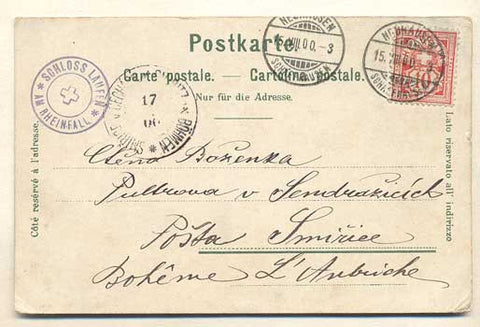 Postkarte.
Carte postale. — Cartolina postale.
Nur für die Adresse.
Côté reservé à l'adresse.
Lato riservato all' indirizzo
* SCHLOSS LAUFEN *
AM RHEINFALL
17
BÖHMEN
NEUHAUSEN
VIII.00.-3
NEUHAUSEN
15.
Ctěná Boženka
Pultrova v Sendražicích
Pošta Smiřice
Bohême L'Autriche